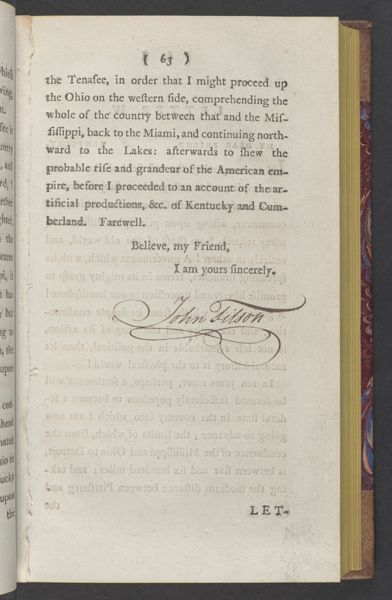 ( 63 )
the Tenasee, in order that I might proceed up
the Ohio on the western side, comprehending the
whole of the country between that and the Mis-
sissippi, back to the Miami, and continuing north-
ward to the Lakes: afterwards to shew the
probable rise and grandeur of the American em-
pire, before I proceeded to an account of the ar-
tificial productions, &c. of Kentucky and Cum-
berland. Farewell.
Believe, my Friend,
I am yours sincerely.
John Filson
LET-